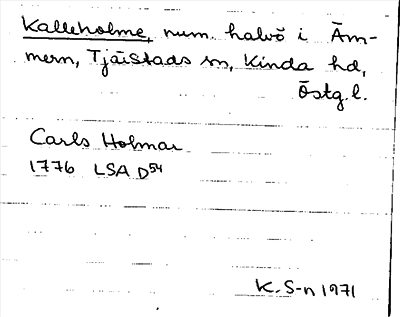 Kalleholme, num. halvö i Äm-
mern, Tjäistads sn, Kinda hd,
Östg.l.
Carls Holmar
1776 LSA D54
K. S-n 1971